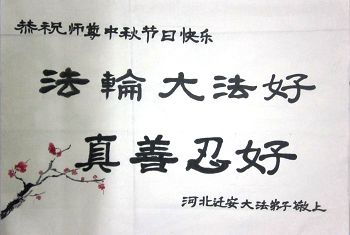 恭祝师尊中秋节日快乐
法輪大法好
真善忍好
河北迁安大法弟子敬上